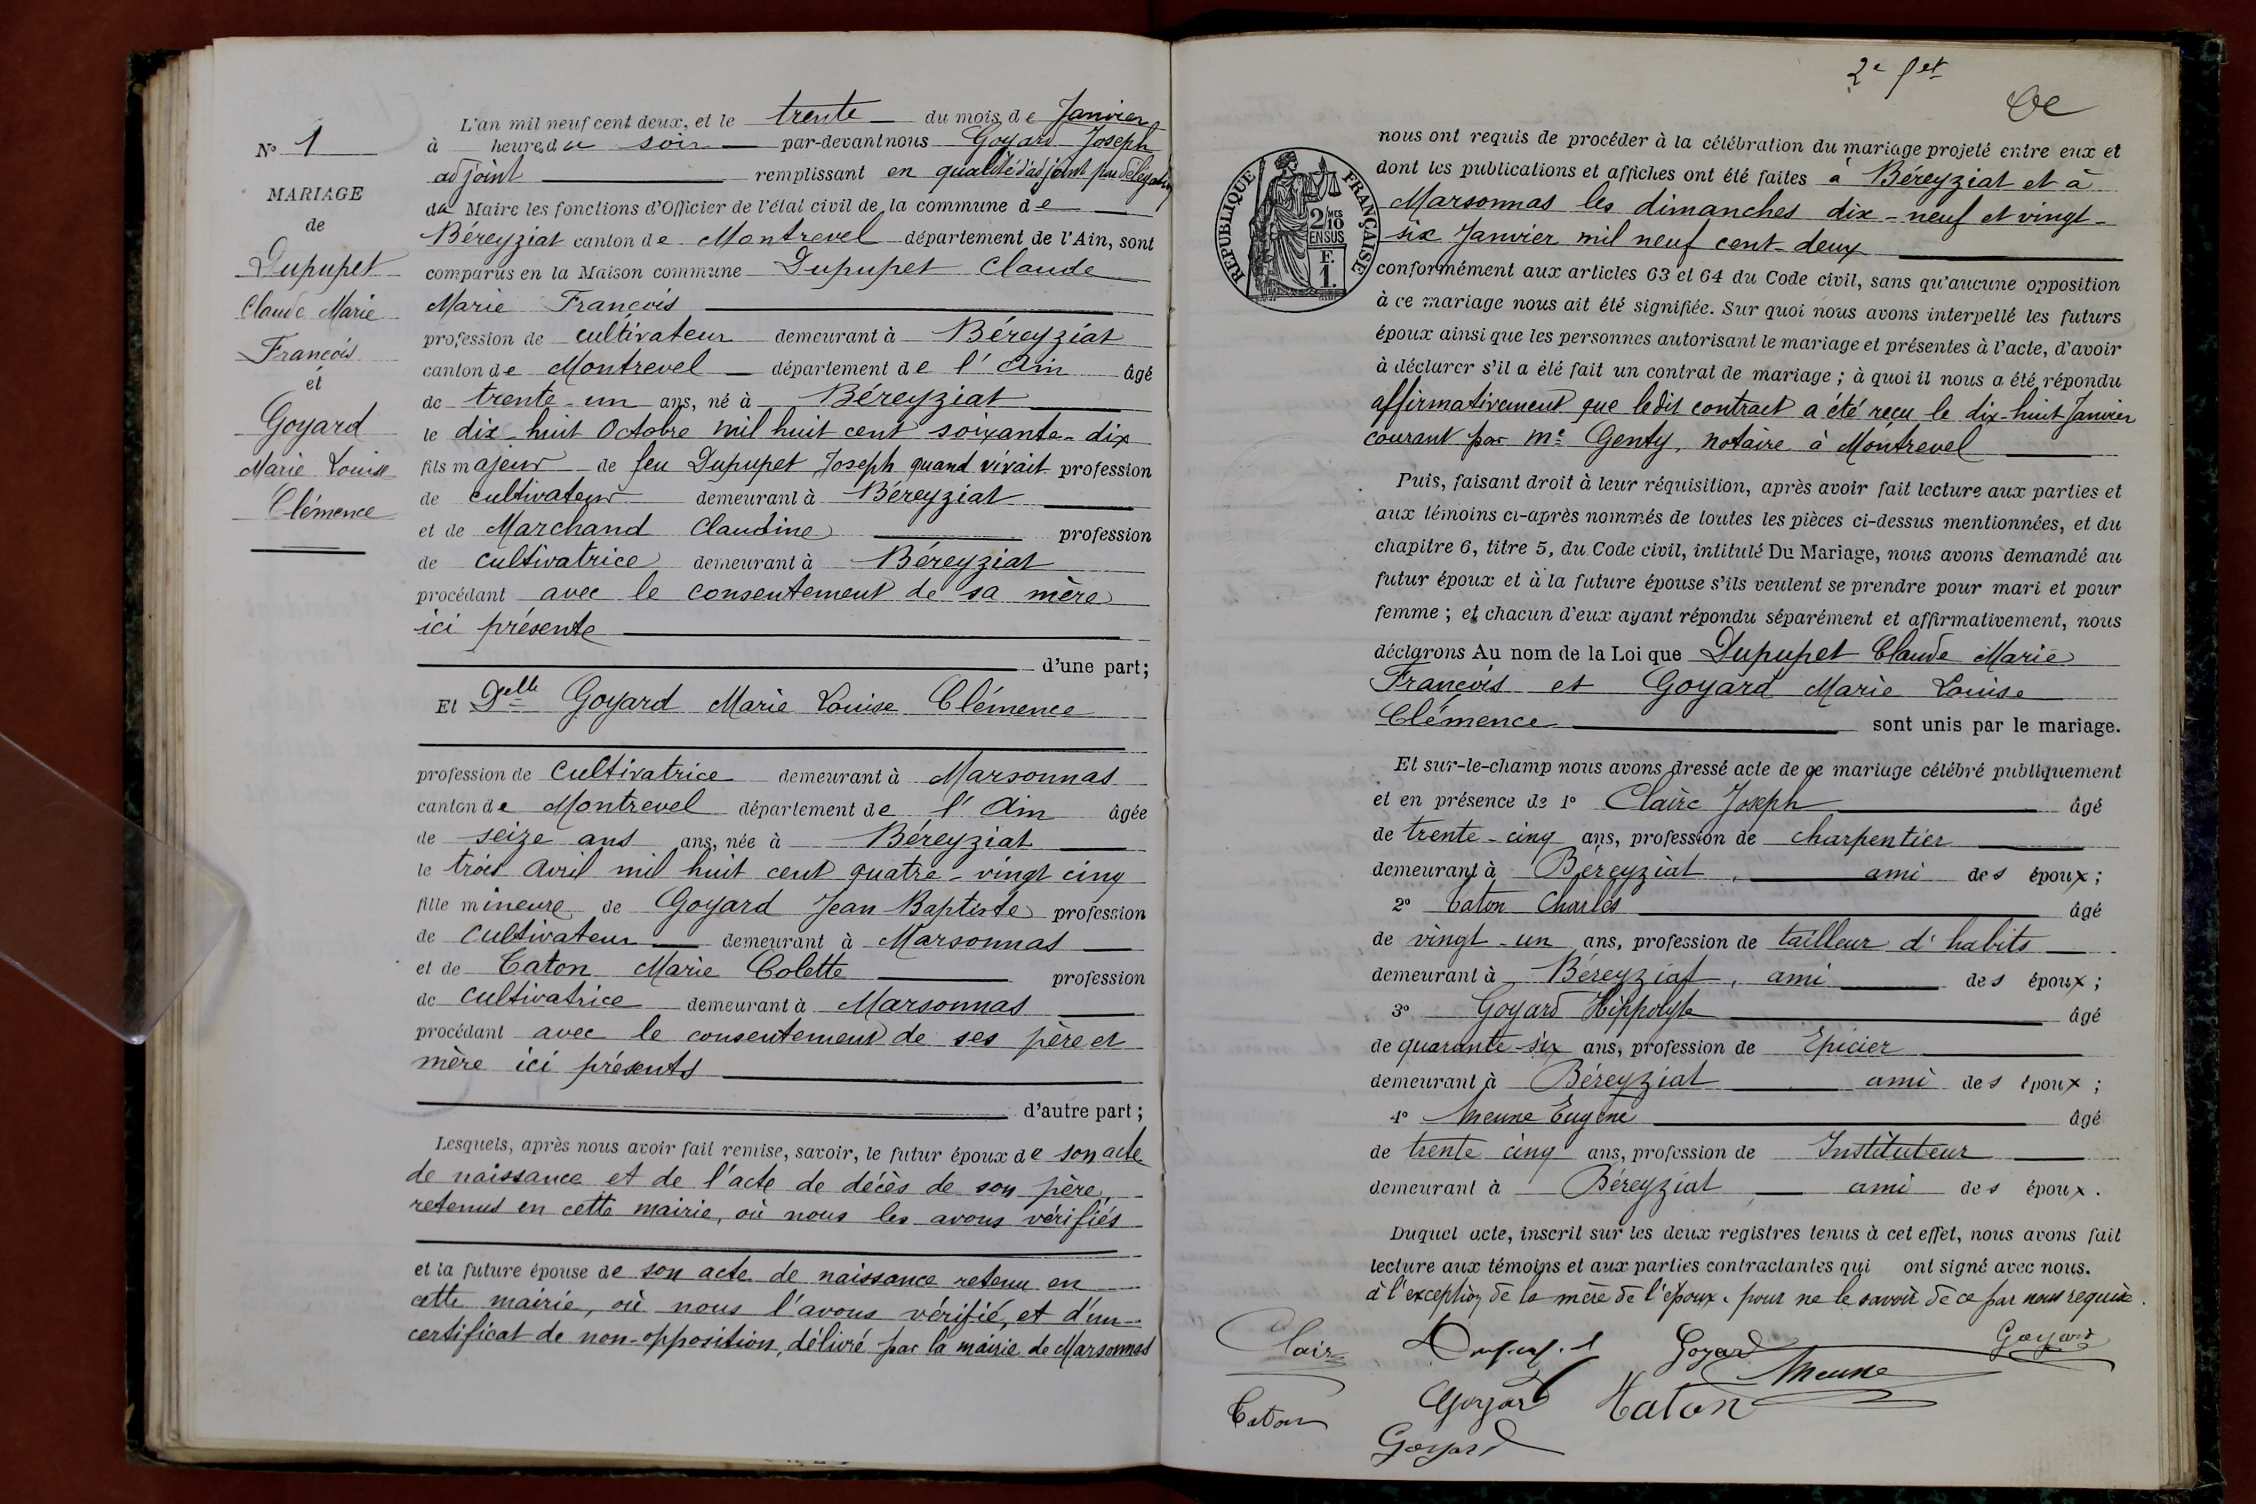 N° 1
MARIAGE
de
Dupupet
Claude Marie
François
et
Goyard
Marie Louise
Clémence
L'an mil neuf cent deux, et le trente du mois de Janvier
à heure du soir par-devant nous Goyard Joseph
adjoint remplissant en qualité d'adjoint par délégation
du Maire les fonctions d'Officier de l'état civil de la commune de
Béreyziat canton de Montrevel département de l'Ain, sont
comparus en la Maison commune Dupupet Claude
Marie François
profession de cultivateur demeurant à Béreyziat
canton de Montrevel département de l'Ain âgé
de trente-un ans, né à Béreyziat
le dix-huit Octobre mil huit cent soixante-dix
fils majeur de feu Dupupet Joseph quand vivait profession
de cultivateur demeurant à Béreyziat
et de Marchand Claudine profession
de cultivatrice demeurant à Béreyziat
procédant avec le consentement de sa mère
ici présente
d'une part;
Et Delle Goyard Marie Louise Clémence
profession de cultivatrice demeurant à Marsonnas
canton de Montrevel département de l'Ain âgée
de seize ans ans, née à Béreyziat
le trois Avril mil huit cent quatre-vingt cinq
fille mineure de Goyard Jean Baptiste profession
de cultivateur demeurant à Marsonnas
et de Caton Marie Colette profession
de cultivatrice demeurant à Marsonnas
procédant avec le consentement de ses père et
mère ici présents
d'autre part;
Lesquels, après nous avoir fait remise, savoir, le futur époux de son acte
de naissance et de l'acte de décès de son père,
retenus en cette mairie, où nous les avons vérifiés
et la future épouse de son acte de naissance retenu en
cette mairie, où nous l'avons vérifié, et d'un
certificat de non-opposition, délivré par la mairie de Marsonnas
2e fet
RÉPUBLIQUE FRANÇAISE
2/10 MES
EN SUS
F.
1.
nous ont requis de procéder à la célébration du mariage projeté entre eux et
dont les publications et affiches ont été faites à Béreyziat et à
Marsonnas les dimanches dix-neuf et vingt-
six Janvier mil neuf cent-deux
conformément aux articles 63 et 64 du Code civil, sans qu'aucune opposition
à ce mariage nous ait été signifiée. Sur quoi nous avons interpellé les futurs
époux ainsi que les personnes autorisant le mariage et présentes à l'acte, d'avoir
à déclarer s'il a été fait un contrat de mariage; à quoi il nous a été répondu
affirmativement que ledit contract a été reçu le dix-huit Janvier
courant par Me Genty, notaire à Montrevel
Puis, faisant droit à leur réquisition, après avoir fait lecture aux parties et
aux témoins ci-après nommés de toutes les pièces ci-dessus mentionnées, et du
chapitre 6, titre 5, du Code civil, intitulé Du Mariage, nous avons demandé au
futur époux et à la future épouse s'ils veulent se prendre pour mari et pour
femme; et chacun d'eux ayant répondu séparément et affirmativement, nous
déclarons Au nom de la Loi que Dupupet Claude Marie
François et Goyard Marie Louise
Clémence sont unis par le mariage.
Et sur-le-champ nous avons dressé acte de ce mariage célébré publiquement
et en présence de 1° Claire Joseph âgé
de trente-cinq ans, profession de charpentier
demeurant à Béreyziat, ami des époux;
2° Caton Charles âgé
de vingt-un ans, profession de tailleur d'habits
demeurant à Béreyziat, ami des époux;
3° Goyard Hippolyte âgé
de quarante-six ans, profession de Epicier
demeurant à Béreyziat ami des époux;
4° Meune Eugène âgé
de trente cinq ans, profession de Instituteur
demeurant à Béreyziat ami des époux.
Duquel acte, inscrit sur les deux registres tenus à cet effet, nous avons fait
lecture aux témoins et aux parties contractantes qui ont signé avec nous.
à l'exception de la mère de l'époux, pour ne le savoir de ce par nous requise.
Clair Dupupet Goyard Goyard
Meune
Caton Goyard Caton
Goyard